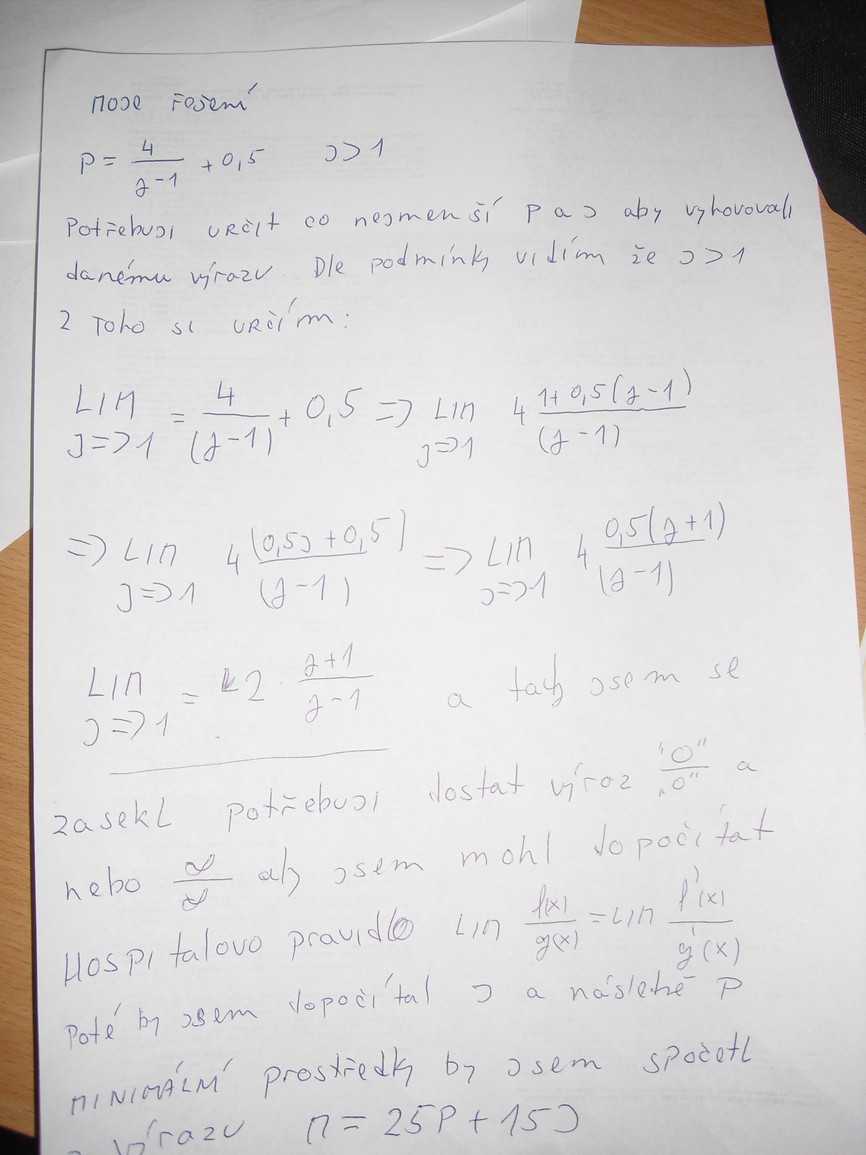 MOJE ŘEŠENÍ
P = 4/(J-1) + 0,5    J>1
Potřebuji určit co nejmenší P a J aby vyhovovali
danému výrazu. Dle podmínky vidím že J>1
Z Toho si určím:
LIM J=>1 = 4/(J-1) + 0,5 => LIM J=>1 4 (1+0,5(J-1))/(J-1)
=> LIM J=>1 4 (0,5J+0,5)/(J-1) => LIM J=>1 4 0,5(J+1)/(J-1)
LIM J=>1 = 2 · (J+1)/(J-1) a tady jsem se
zasekl potřebuji dostat výraz "0"/"0" a
nebo ∞/∞ aby jsem mohl dopočítat
Hospitalovo pravidlo LIM f(x)/g(x) = LIM f'(x)/g'(x)
Poté by jsem dopočítal J a následně P
MINIMÁLNÍ prostředky by jsem spočetl
z výrazu M = 25P + 15J